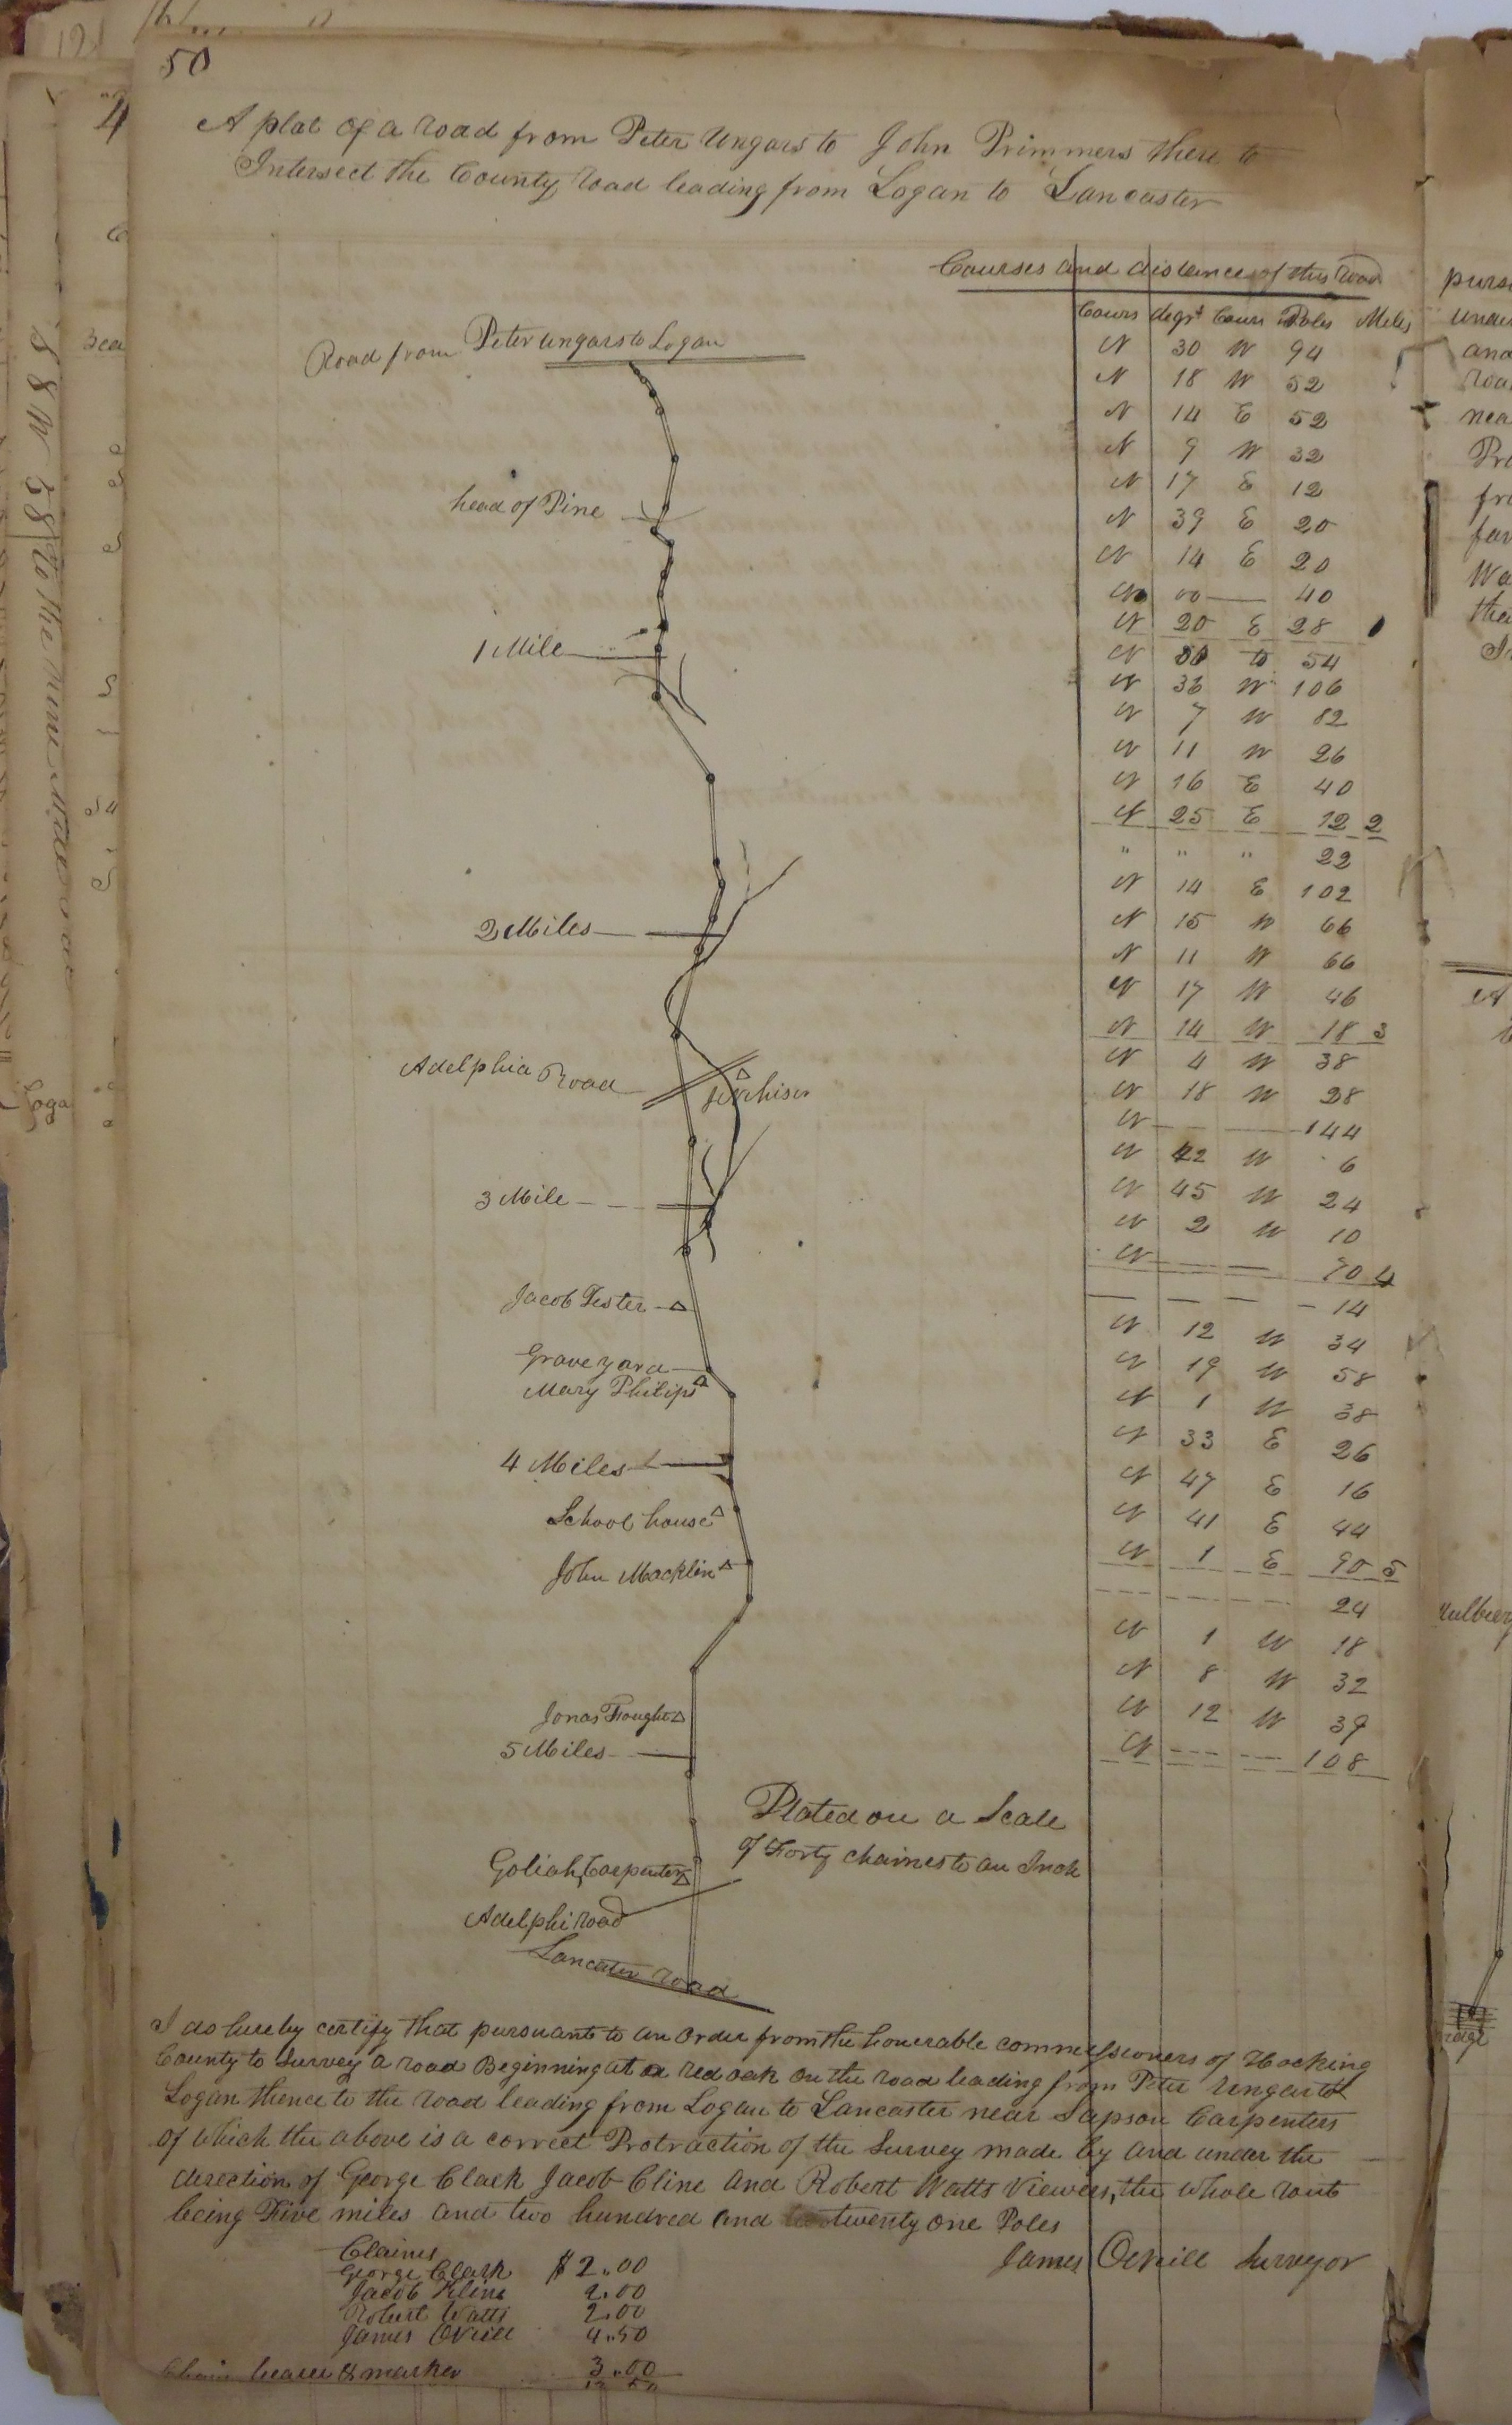 50
A plat of a road from Peter Ungars to John Primmers there to
Intersect the County road leading from Logan to Lancaster
Courses and distances of this road
Cours degrs Cours Poles Miles
N 30 W 94
N 18 W 52
N 14 E 52
N 9 W 32
N 17 E 12
N 39 E 20
N 14 E 20
N 00 — 40
N 20 E 28
N 54
N 36 W 106
N 7 W 82
N 11 W 26
N 16 E 40
N 25 E 12 2
" " " 22
N 14 E 102
N 15 W 66
N 11 W 66
N 17 W 46
N 14 W 18 3
N 4 W 38
N 18 W 28
N — — 144
N 42 W 6
N 45 W 24
N 2 W 10
N — — 70 4
— — — — 14
N 12 W 34
N 19 W 58
N 1 W 38
N 33 E 26
N 47 E 16
N 41 E 44
N 1 E 90 5
24
N 1 W 18
N 8 W 32
N 12 W 39
N --- --- 108
Road from Peter Ungars to Logan
head of Pine
1 Mile
2 Miles
Adelphia Road
3 Mile
Jacob Fester
Grave yard
Mary Philips
4 Miles
School house
John Macklin
Jonas Fought
5 Miles
Plated on a Scale
of Forty chaines to an Inch
Goliah Carpenter
Adelphi road
Lancaster road
I do hereby certify that pursuant to an Order from the honerable commissioners of Hocking
County to Survey a road Beginning at a red oak on the road leading from Peter Ungars to
Logan thence to the road leading from Logan to Lancaster near Sapson Carpenters
of which the above is a correct Protraction of the Survey made by and under the
direction of George Clark Jacob Cline and Robert Watts Viewers, the whole rout
being Five miles and two hundred and twenty one Poles
James ONeill Surveyor
Claims
George Clark $2.00
Jacob Kline 2.00
Robert Watts 2.00
James ONeill 4.50
Chain bearer & marker 3.00